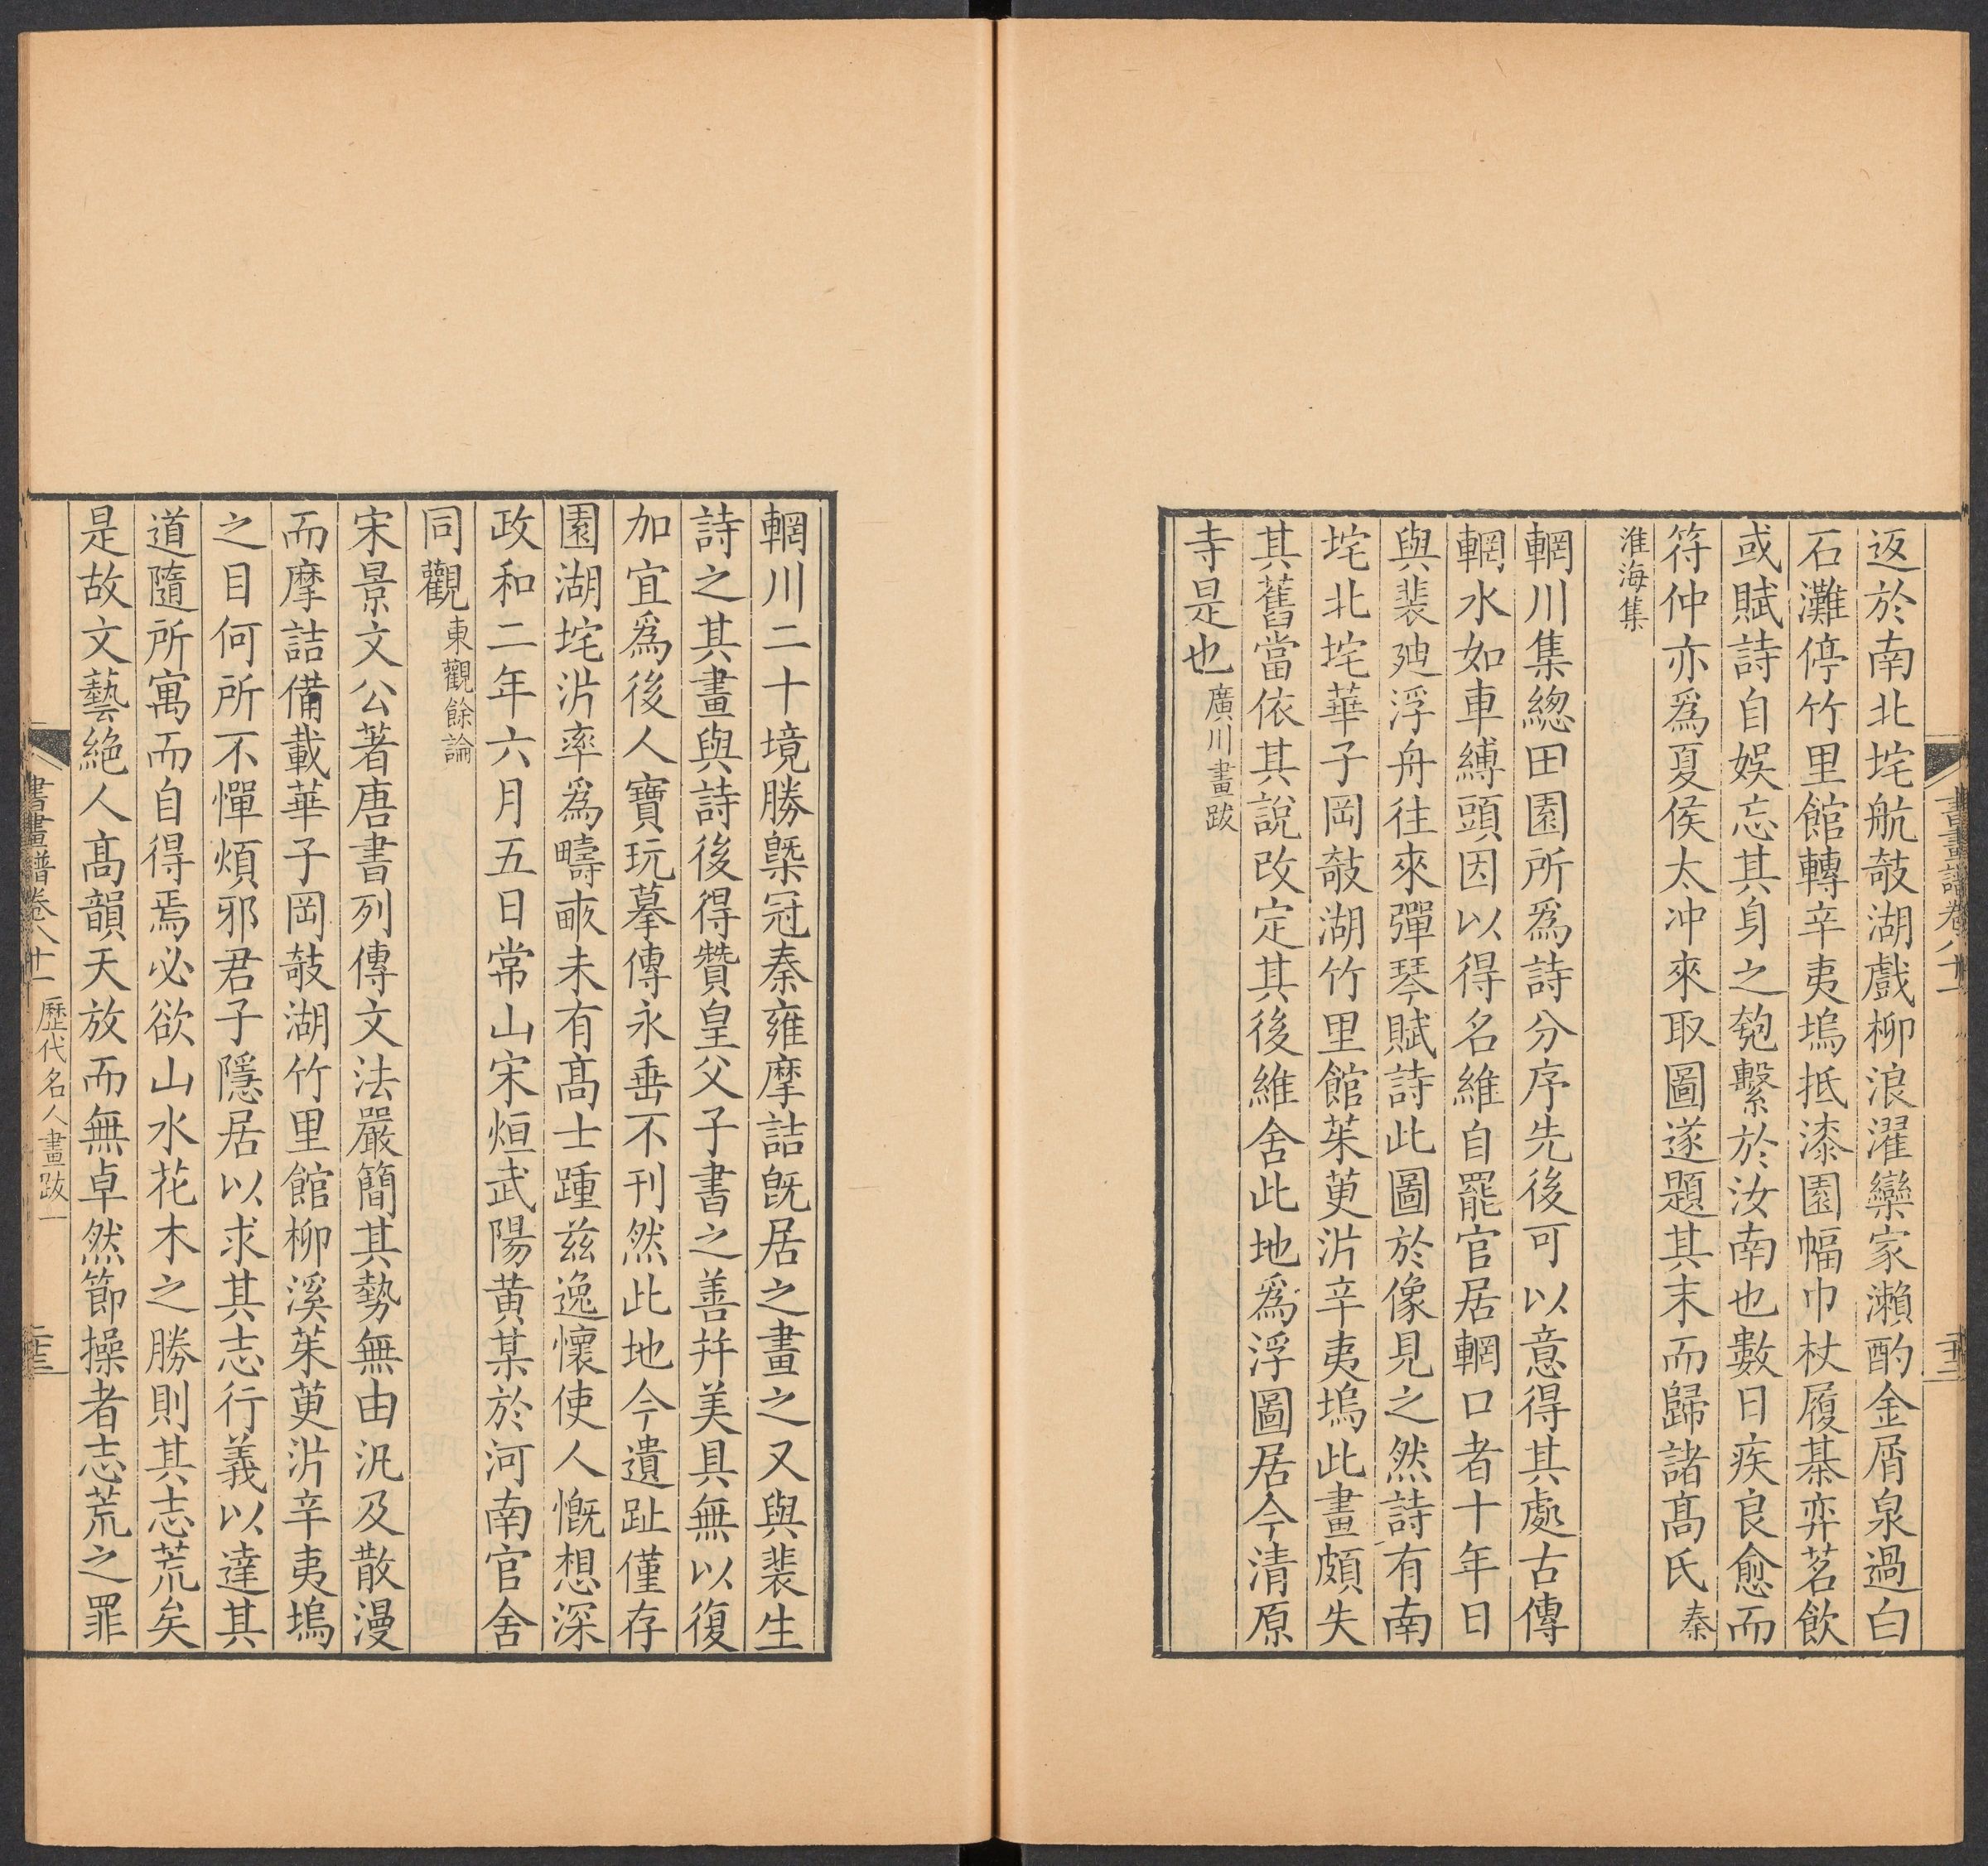 返於南北垞航攲湖戲柳浪濯欒家瀨酌金屑泉過白
石灘停竹里館轉辛夷塢抵漆園幅巾杖履棊弈茗飲
或賦詩自娛忘其身之匏繫於汝南也數日疾良愈而
符仲亦爲夏侯太冲來取圖遂題其末而歸諸髙氏秦
淮海集
輞川集總田園所爲詩分序先後可以意得其處古傳
輞水如車縛頭因以得名維自罷官居輞口者十年日
與裴廸浮舟往來彈琴賦詩此圖於像見之然詩有南
垞北垞華子岡攲湖竹里館茱萸沜辛夷塢此畫頗失
其舊當依其說改定其後維舍此地爲浮圖居今清原
寺是也廣川畫跋
書畫譜卷八十一
二十三
輞川二十境勝槩冠秦雍摩詰旣居之畫之又與裴生
詩之其畫與詩後得贊皇父子書之善并美具無以復
加宜爲後人寶玩摹傳永垂不刊然此地今遺趾僅存
園湖垞沜率爲疇畞未有髙士踵兹逸懷使人慨想深
政和二年六月五日常山宋烜武陽黃某於河南官舍
同觀東觀餘論
宋景文公著唐書列傳文法嚴簡其勢無由汎及散漫
而摩詰備載華子岡攲湖竹里館柳溪茱萸沜辛夷塢
之目何所不憚煩邪君子隱居以求其志行義以達其
道隨所寓而自得焉必欲山水花木之勝則其志荒矣
是故文藝絶人髙韻天放而無卓然節操者志荒之罪
書畫譜卷八十一 歷代名人畫跋一
二十三